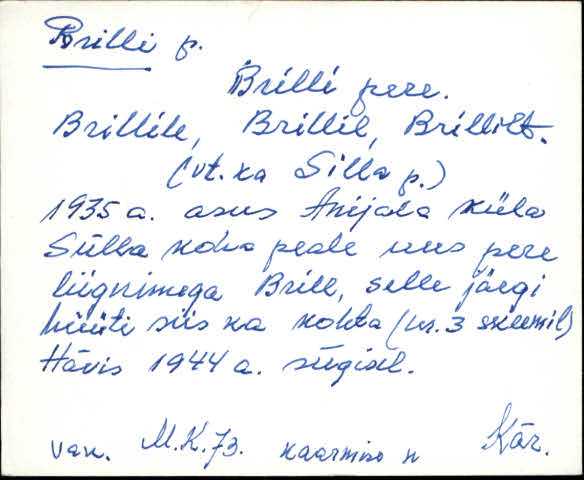 Brilli p.
Brilli pere.
Brillile, Brillil, Brillilt.
(vt. ka Silla p.)
1935 a. asus Anijala küla
Sülla koha peale uus pere
liignimega Brill, selle järgi
hüüti siis ka kohta (nr. 3 skeemil)
Hävis 1944 a. sügisel.
van. M.K. 73. Kaarmise n Kär.